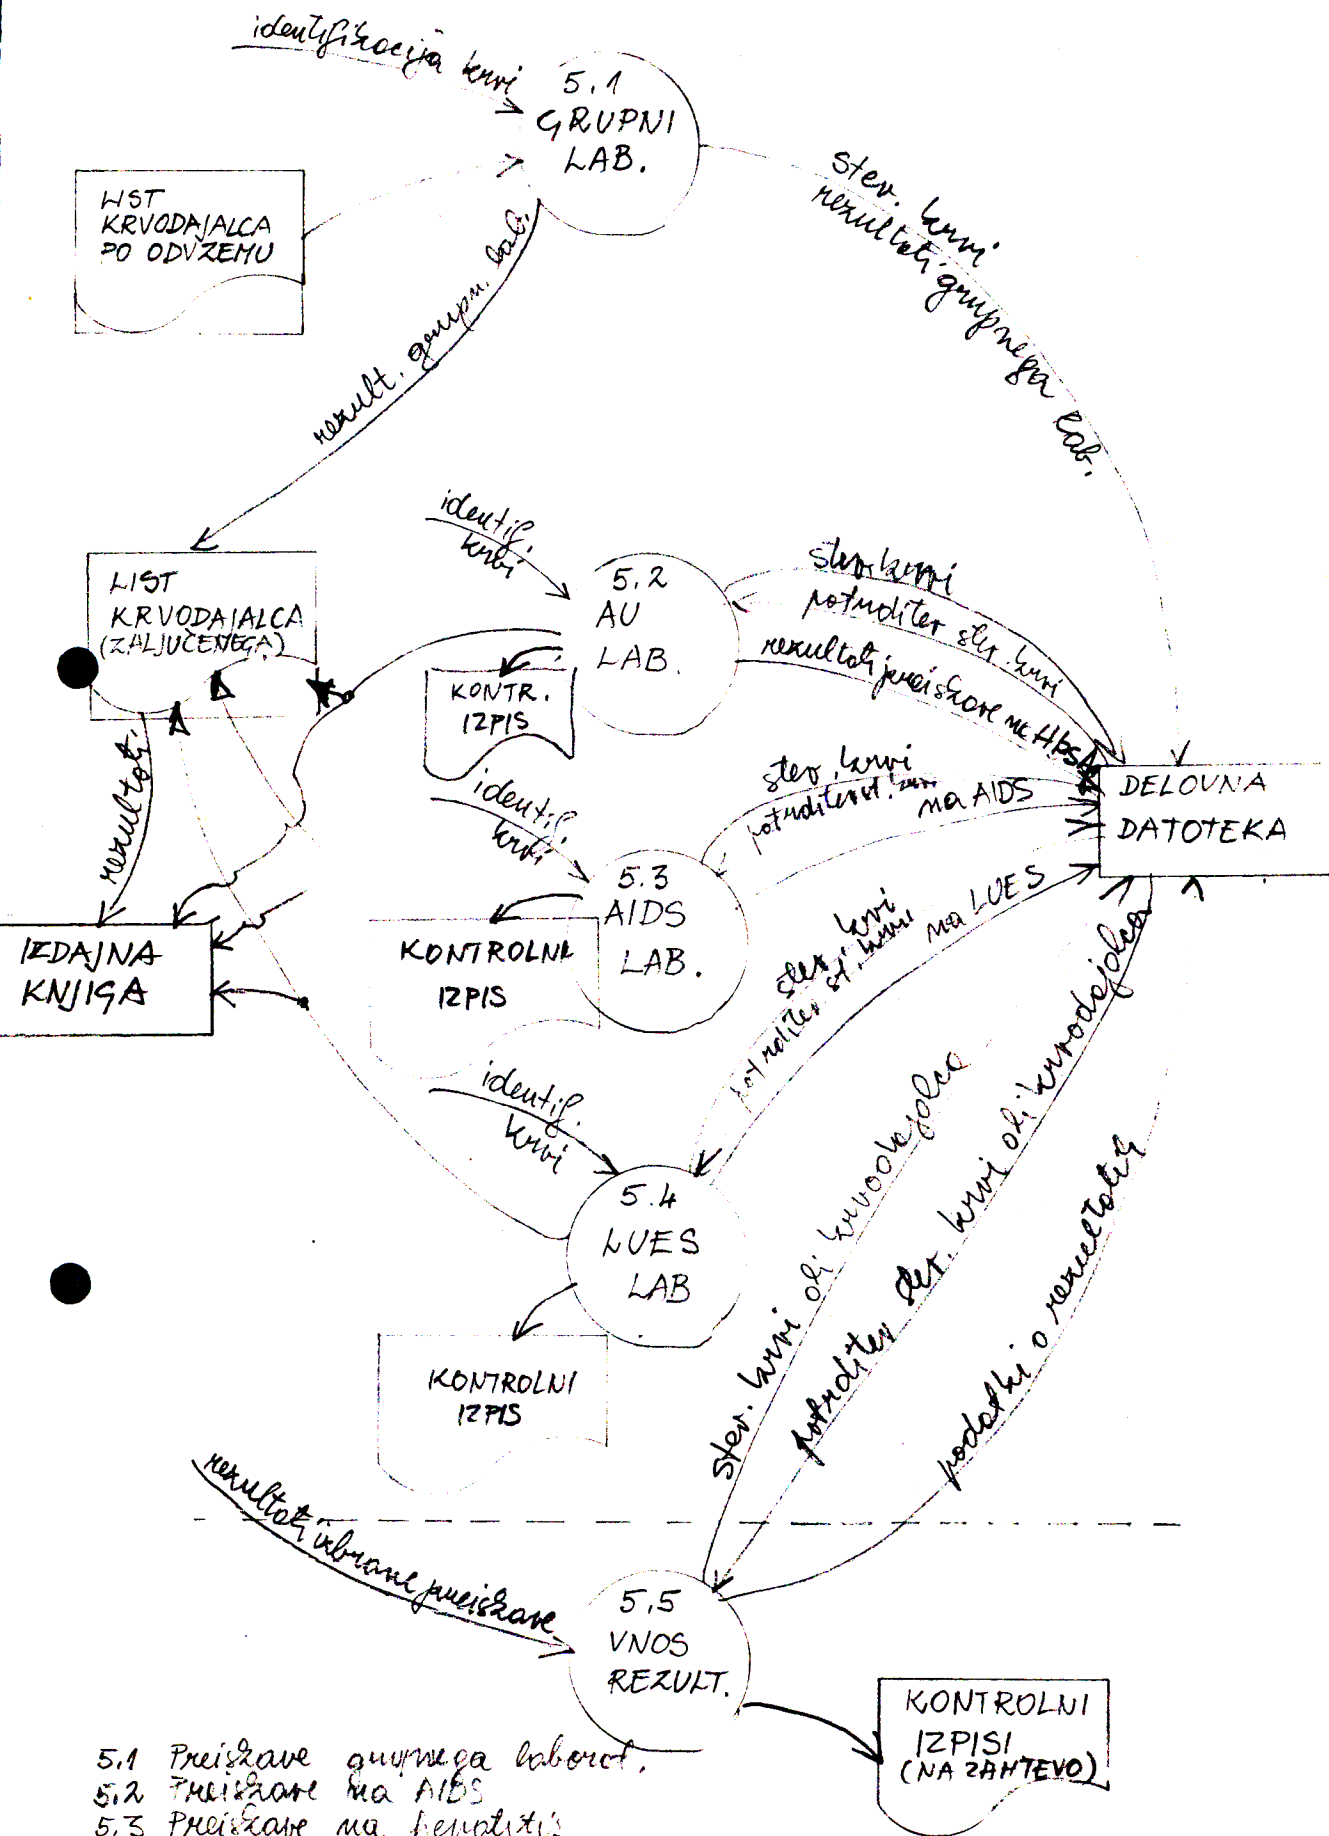 identifikacija krvi
5.1
GRUPNI
LAB.
LIST
KRVODAJALCA
PO ODVZEMU
rezult. grupn. lab.
štev. krvi
rezultati grupnega lab.
identif.
krvi
LIST
KRVODAJALCA
(ZALJUČENEGA)
5.2
AU
LAB.
štev. krvi
potrditev štev. krvi
rezultati preiskave na HBSA
KONTR.
IZPIS
rezultati
identif.
krvi
štev. krvi
potrditev št. krvi
na AIDS
DELOVNA
DATOTEKA
5.3
AIDS
LAB.
IZDAJNA
KNJIGA
KONTROLNI
IZPIS
štev. krvi
potrditev št. krvi
na LUES
identif.
krvi
5.4
LUES
LAB
KONTROLNI
IZPIS
štev. krvi ali krvodajalca
potrditev štev. krvi ali krvodajalca
podatki o rezultatih
rezultati izbrane preiskave
5.5
VNOS
REZULT.
KONTROLNI
IZPISI
(NA ZAHTEVO)
5.1 Preiskave grupnega laborat.
5.2 Preiskave na AIDS
5.3 Preiskave na hepatitis